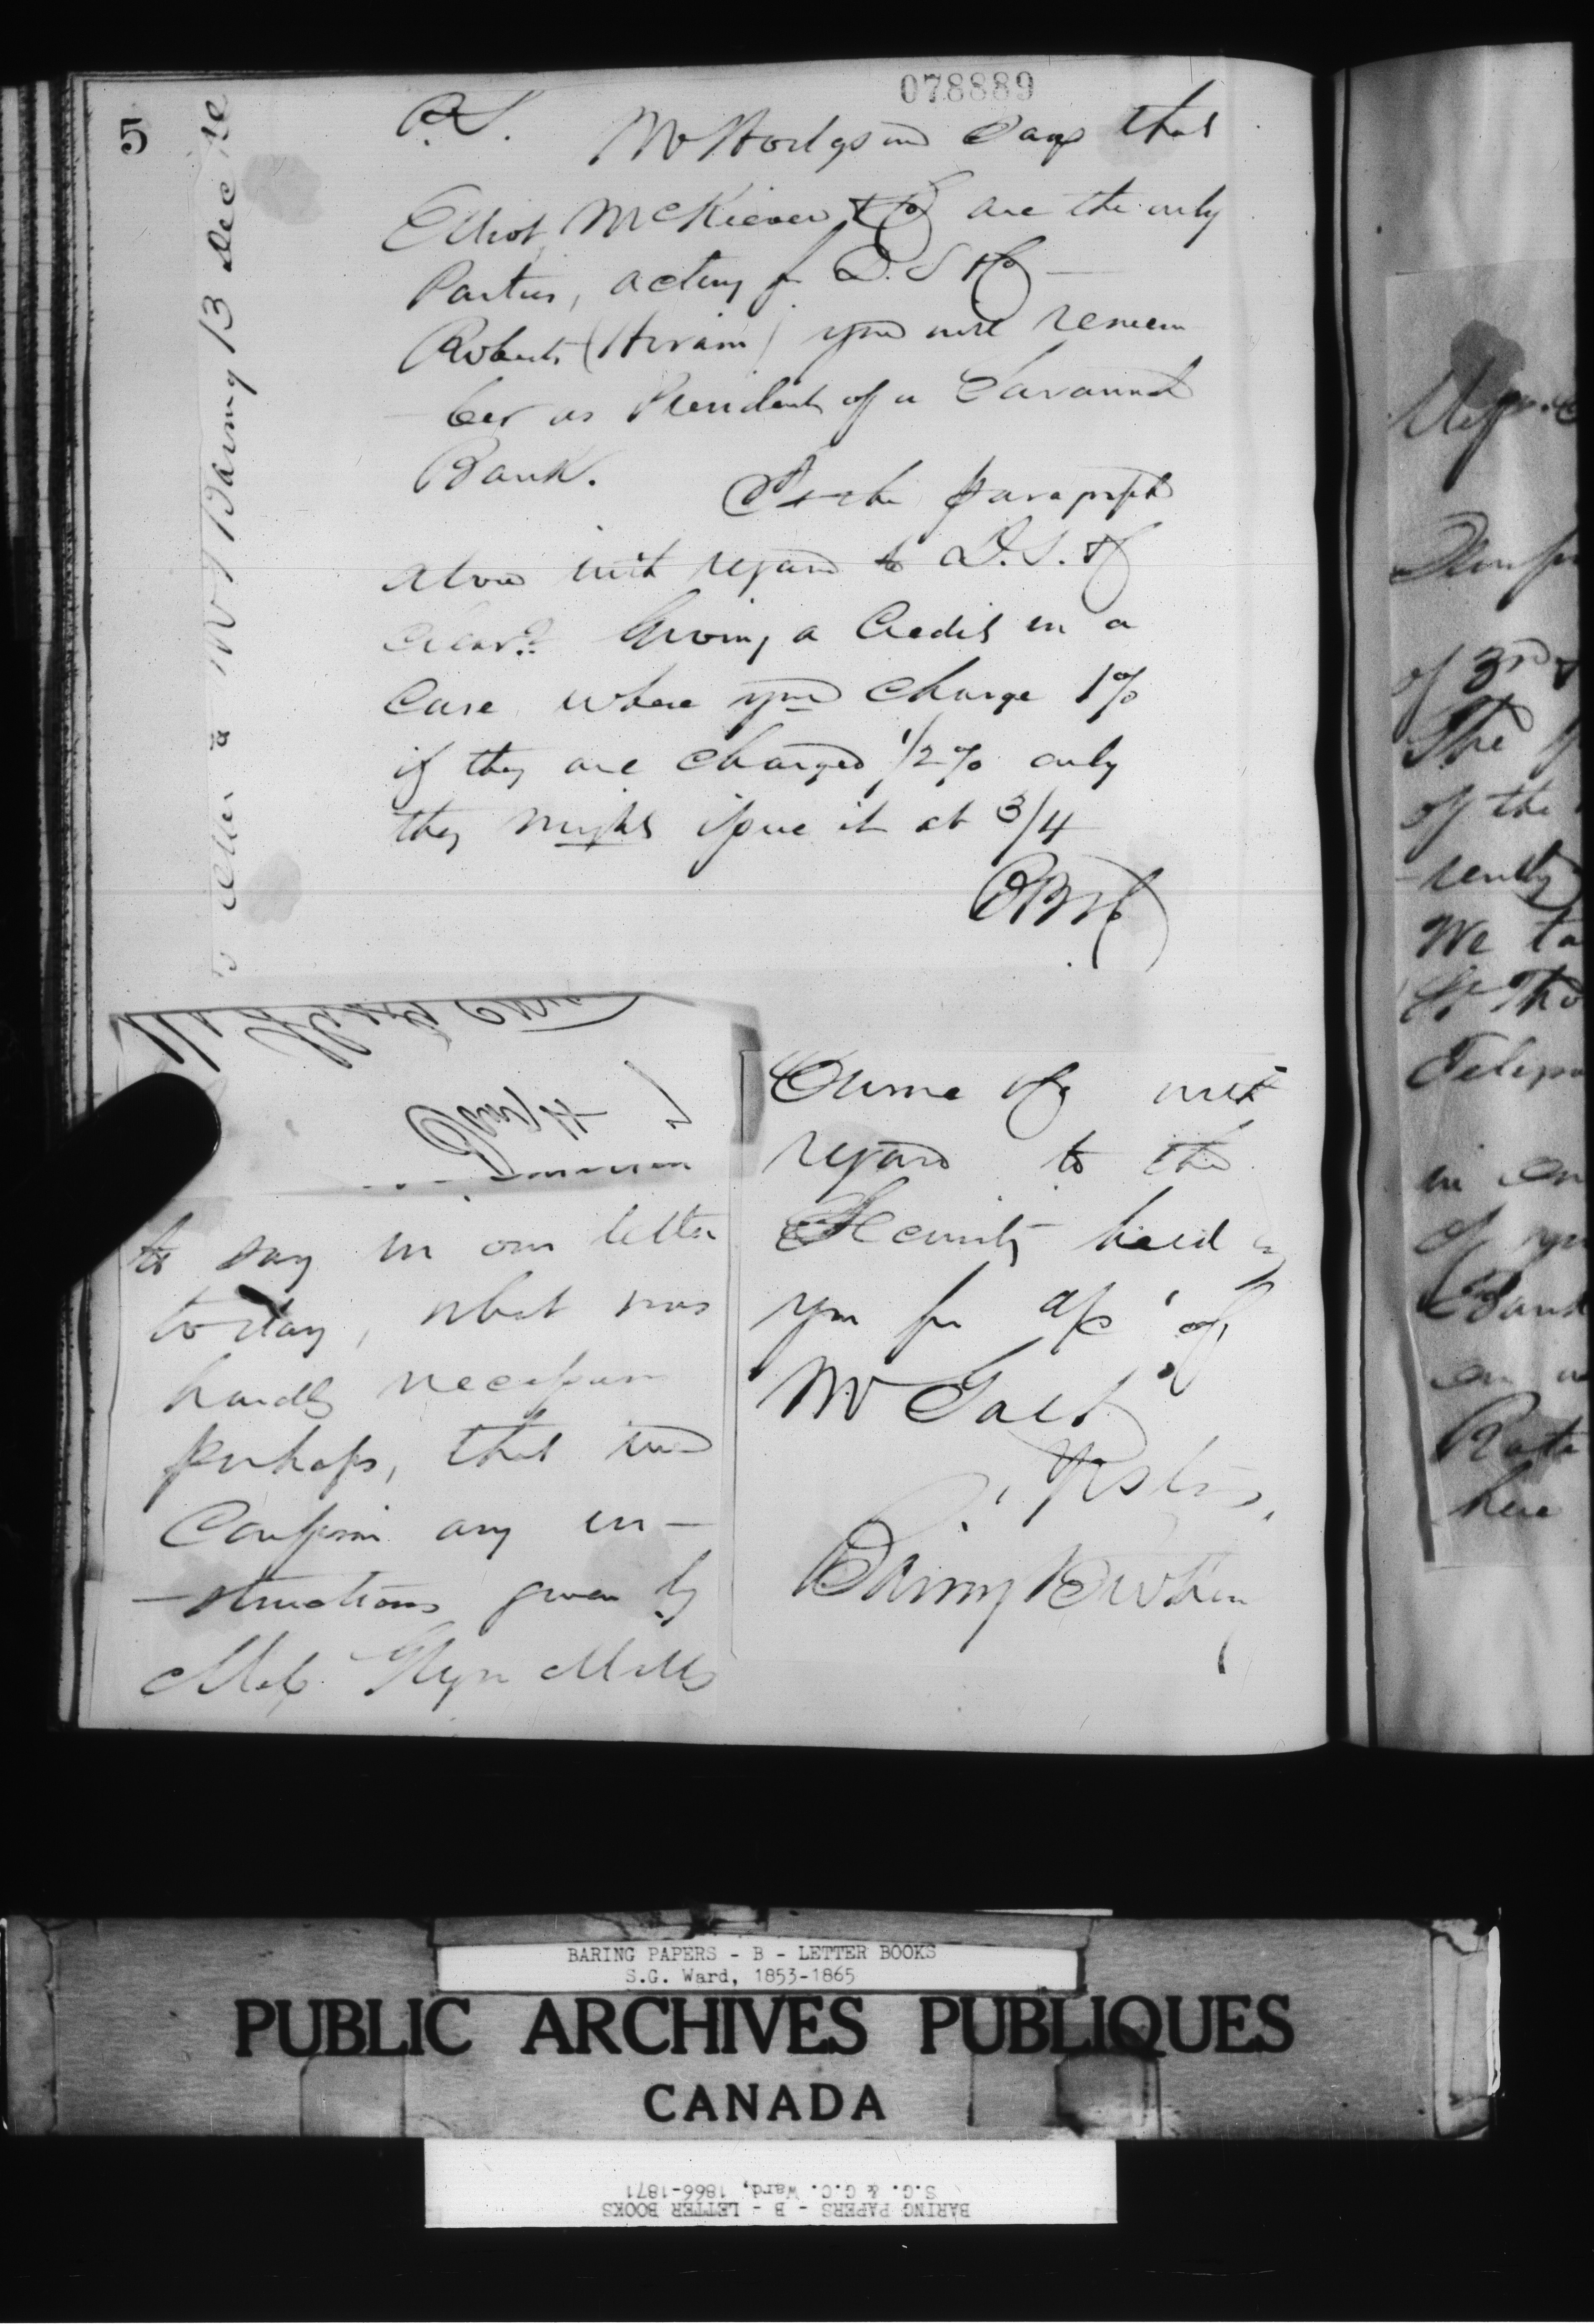 078889
5
P.S. Mr Hodgson says that
Elliot McKiever & Co are the only
Parties, acting for D. S & Co
Roberts (Hiram) you will remem
-ber as President of a Savannah
Bank.
Is the paragraph
above with regard to D. S. & Co
clear? Giving a Credit in a
Case where you charge 1%
if they are charged 1/2% only
they might issue it at 3/4
13 Dec
to say in our letter
today, what was
hardly necessary
perhaps, that we
Confirm any in-
-structions given by
Mess Glyn Mills
Currie & Co with
regard to the
Security held by
you for a/c of
Mr Galt
Baring Brothers
of 3rd
The
of the
-rently
We
St Tho
in
of
Bank
Rate
here
BARING PAPERS - B - LETTER BOOKS
S.G. Ward, 1853-1865
PUBLIC ARCHIVES PUBLIQUES
CANADA
BARING PAPERS - B - LETTER BOOKS
S.G. & G.C. Ward, 1866-1871